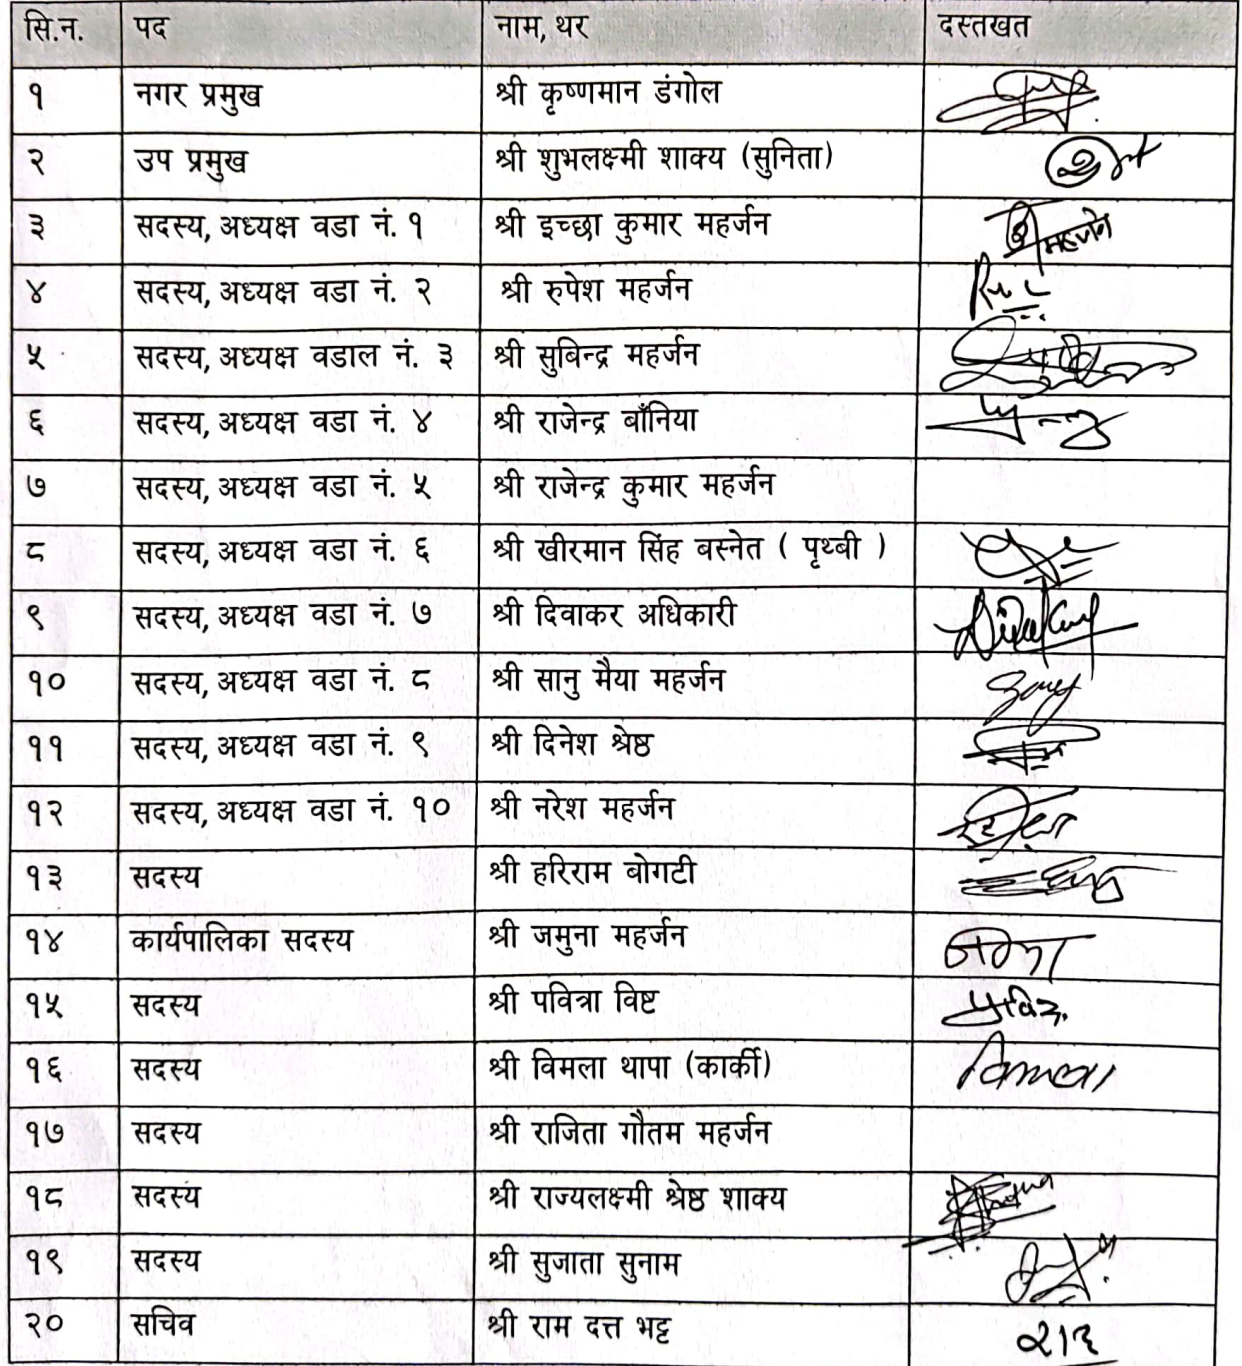 सि.न. पद नाम, थर दस्तखत
१ नगर प्रमुख श्री कृष्णमान डंगोल
२ उप प्रमुख श्री शुभलक्ष्मी शाक्य (सुनिता)
३ सदस्य, अध्यक्ष वडा नं. १ श्री इच्छा कुमार महर्जन महर्जन
४ सदस्य, अध्यक्ष वडा नं. २ श्री रुपेश महर्जन
५ सदस्य, अध्यक्ष वडाल नं. ३ श्री सुबिन्द्र महर्जन
६ सदस्य, अध्यक्ष वडा नं. ४ श्री राजेन्द्र बाँनिया
७ सदस्य, अध्यक्ष वडा नं. ५ श्री राजेन्द्र कुमार महर्जन
८ सदस्य, अध्यक्ष वडा नं. ६ श्री खीरमान सिंह बस्नेत ( पृथ्बी )
९ सदस्य, अध्यक्ष वडा नं. ७ श्री दिवाकर अधिकारी
१० सदस्य, अध्यक्ष वडा नं. ८ श्री सानु मैया महर्जन
११ सदस्य, अध्यक्ष वडा नं. ९ श्री दिनेश श्रेष्ठ
१२ सदस्य, अध्यक्ष वडा नं. १० श्री नरेश महर्जन
१३ सदस्य श्री हरिराम बोगटी
१४ कार्यपालिका सदस्य श्री जमुना महर्जन
१५ सदस्य श्री पवित्रा विष्ट
१६ सदस्य श्री विमला थापा (कार्की)
१७ सदस्य श्री राजिता गौतम महर्जन
१८ सदस्य श्री राज्यलक्ष्मी श्रेष्ठ शाक्य
१९ सदस्य श्री सुजाता सुनाम
२० सचिव श्री राम दत्त भट्ट